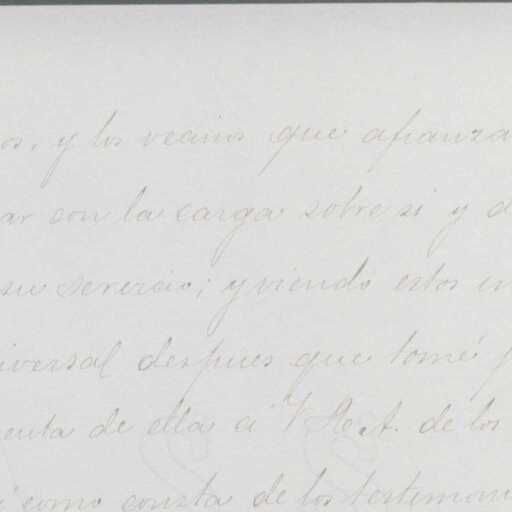 os, y los vecinos que afianza
ar con la carga sobre si y d
su servicio; y viendo estos in
iversal despues que tomé p
enta de ella á V. A. de los
i como consta de los testimoni